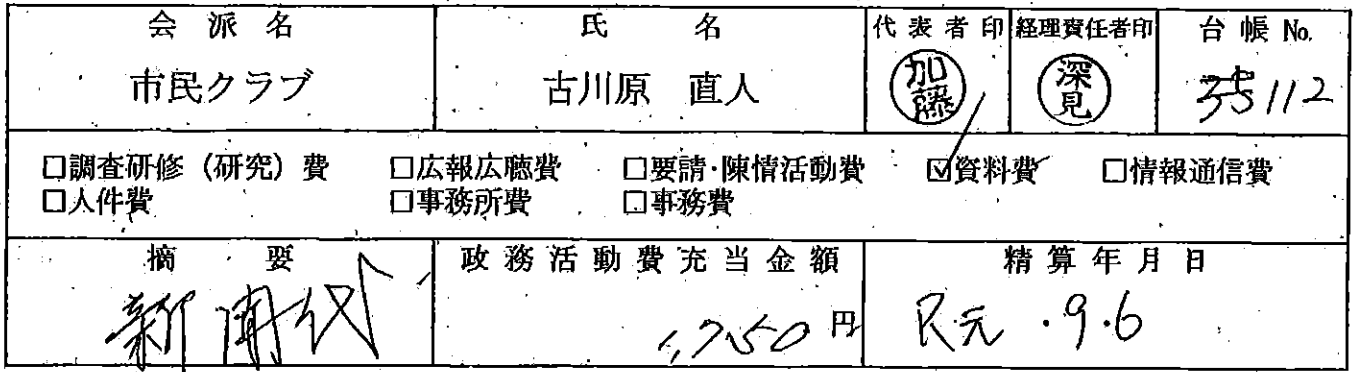 会派名 氏名 代表者印 経理責任者印 台帳No.
市民クラブ 古川原 直人 加藤 深見 112
□調査研修(研究)費 □広報広聴費 □要請・陳情活動費 ☑資料費 □情報通信費
□人件費 □事務所費 □事務費
摘要 政務活動費充当金額 精算年月日
新聞代 1,750円 R元.9.6